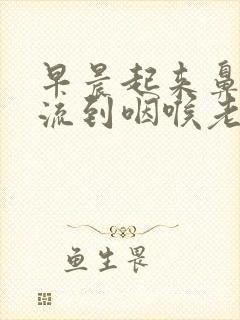 早晨起来鼻
流到咽喉老
鱼生畏